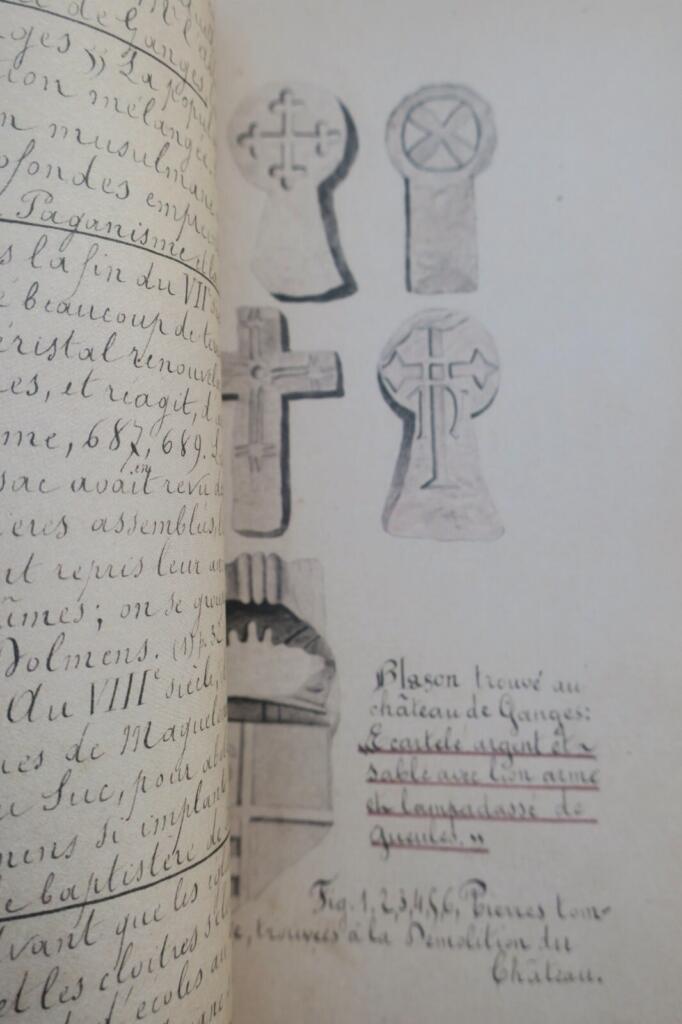 de Ganges
ges » La popul
ion mélangée
n musulmane
ofondes empre
Paganisme et
s la fin du VIIe
é beaucoup de
éristal renouvel
es, et réagit, d'
me, 687, 689.
en
sac avait revu
ières assemblées
nt repris leur
îmes; on se
Dolmens. (1) p.
Au VIIIe siècle,
ues de Maguelo
u Suc, pour
mens si implant
e baptistère de
ivant que les
et les cloîtres
d'écoles au
Blason trouvé au
château de Ganges:
"Ecartelé argent et
sable avec lion armé
et lampadassé de
gueules."
Fig. 1, 2, 3, 4, 5, 6, Pierres tom-
e, trouvées à la Démolition du
Château.